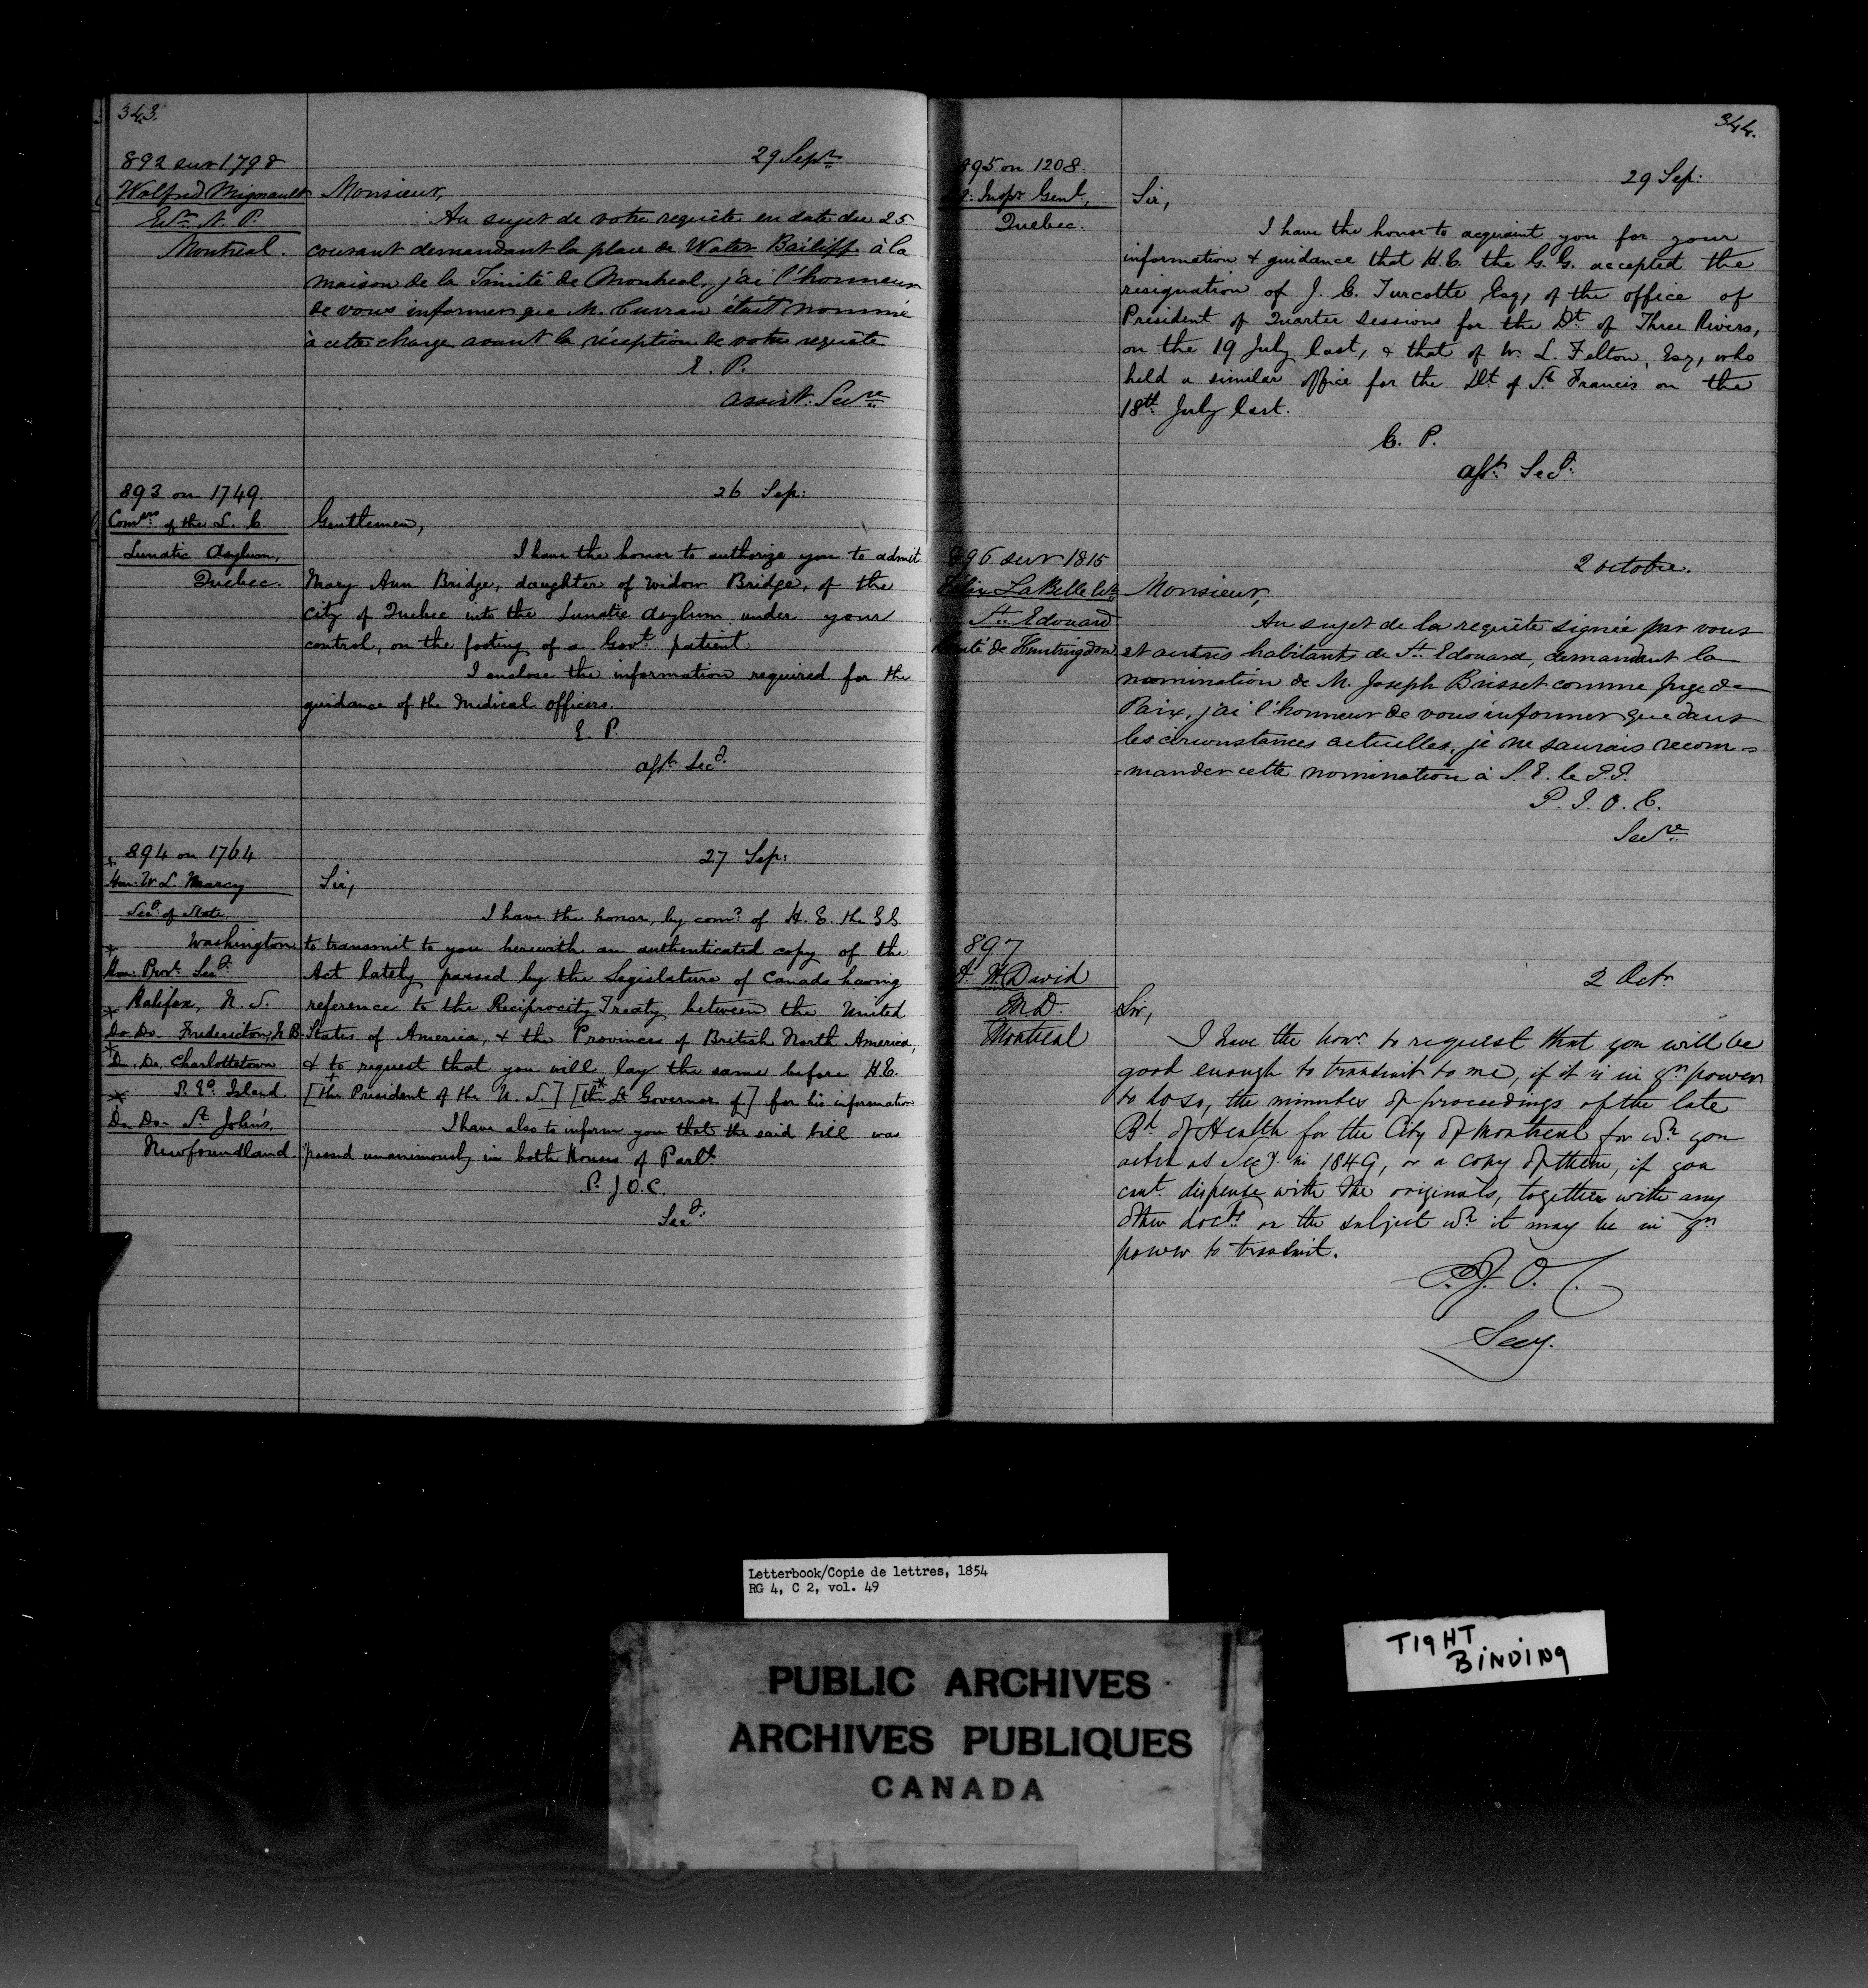 343.
892 sur 1798
29 Sept.
Wolfred Mignault
Ecr. N. P.
Montreal.
Monsieur,
Au sujet de votre requête en date du 25
courant demandant la place de Water Bailiff à la
maison de la Trinité de Montreal, j'ai l'honneur
de vous informer que M. Curran était nommé
à cette charge avant la réception de votre requête.
E. P.
assist. Secre.
893 on 1749.
26 Sep:
Comrs. of the L. C.
Lunatic Asylum,
Quebec.
Gentlemen,
I have the honor to authorize you to admit
Mary Ann Bridge, daughter of widow Bridge, of the
City of Quebec into the Lunatic Asylum under your
control, on the footing of a Govt. patient
I enclose the information required for the
guidance of the Medical officers.
E. P.
asst. Secy.
+ 894 on 1764
27 Sep:
Hon. W. L. Marcy
Secy. of State,
Washington
* Hon. Provl. Secy.
Halifax, N. S.
* Do. Do. Fredericton, N B.
* Do. Do. Charlottetown
P. Ed. Island.
* Do. Do. St. John's,
Newfoundland.
Sir,
I have the honor, by comd. of H. E. the G G.
to transmit to you herewith an authenticated copy of the
Act lately passed by the Legislature of Canada having
reference to the Reciprocity Treaty between the United
States of America, & the Provinces of British North America,
& to request that you will lay the same before H.E.
[+the President of the U. S.] [*the Lt. Governor of] for his information
I have also to inform you that the said bill was
passed unanimously in both Houses of Parlt.
P. J. O. C.
Secy.
344.
895 on 1208.
29 Sep:
Inspr. Genl.,
Quebec.
Sir,
I have the honor to acquaint you for your
information & guidance that H.E. the G. G. accepted the
resignation of J. E. Turcotte, Esq, of the office of
President of Quarter Sessions for the Dt. of Three Rivers,
on the 19 July last, & that of W. L. Felton, Esq, who
held a similar office for the Dt. of St. Francis on the
18th July last.
E. P.
asst. Secy.
896 sur 1815
2 octobre.
Félix LaBelle
St. Edouard
Comté de Huntingdon
Monsieur,
Au sujet de la requête signée par vous
et autres habitants de St. Edouard, demandant la
nomination de M. Joseph Brisset comme Juge de
Paix, j'ai l'honneur de vous informer que dans
les circonstances actuelles, je ne saurais recom=
=mander cette nomination à S. E. le G.G.
P. J. O. C.
Secre.
897
2 Oct.
A. H. David
M.D.
Montreal
Sir,
I have the honr. to request that you will be
good enough to transmit to me, if it is in yr. power
to do so, the minutes of proceedings of the late
Bd. of Health for the City of Montreal for wh. you
acted as Secy. in 1849, or a copy of them, if you
cant. dispense with the originals, together with any
other docts. on the subject wh. it may be in yr.
power to transmit.
P. J. O. C.
Secy.
Letterbook/Copie de lettres, 1854
RG 4, C 2, vol. 49
TIGHT
BINDING
PUBLIC ARCHIVES
ARCHIVES PUBLIQUES
CANADA